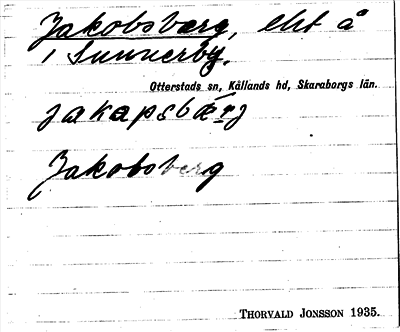 Jakobsberg, lht å
1 Sunnerby.
Otterstads sn, Kållands hd, Skaraborgs län.
jakapsbærj
Jakobsberg
THORVALD JONSSON 1935.